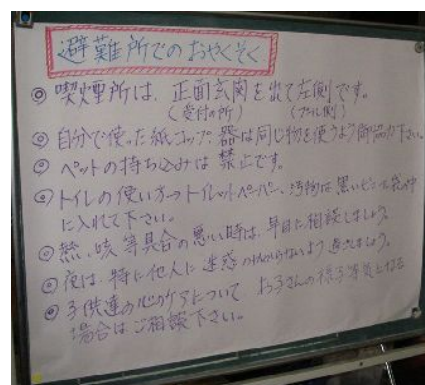 避難所でのおやくそく
◎喫煙所は、正面玄関を出て左側です。
(受付の所) (プール側)
◎自分で使った紙コップ、器は同じ物を使うよう御協力下さい。
◎ペットの持ち込みは禁止です。
◎トイレの使い方→トイレットペーパー、汚物は黒いビニール袋の中
に入れて下さい。
◎熱、咳等具合の悪い時は、早目に相談しましょう。
◎夜は、特に他人に迷惑のかからないよう過ごしましょう。
◎子供達の心のケアについて お子さんの様子等気になる
場合はご相談下さい。